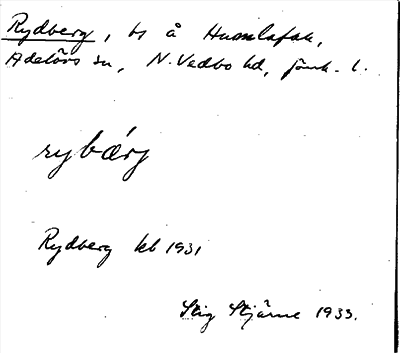 Rydberg, ts å Humlafak,
Adelövs sn, N. Vedbo hd, Jönk. l.
rybærj
Rydberg kb 1931
Stig Stjärne 1933.